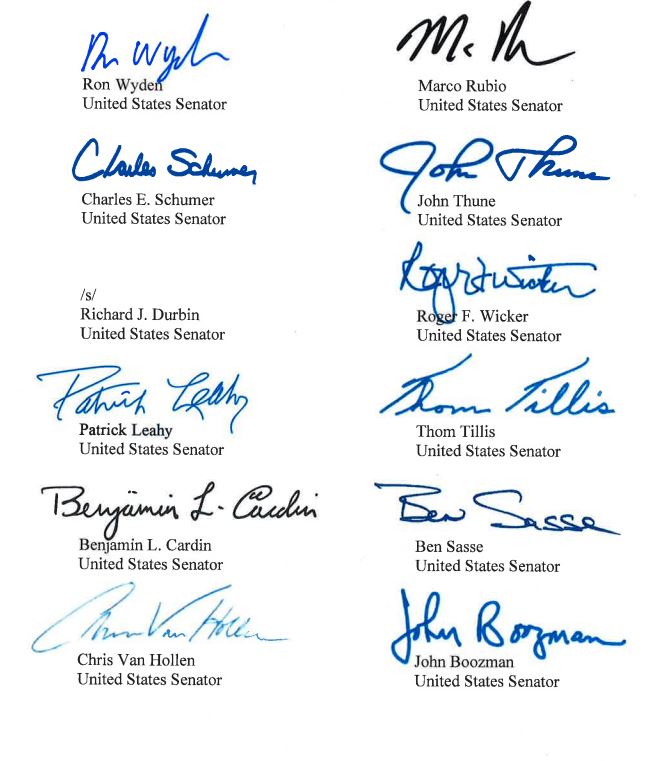 Ron Wyden
Ron Wyden
United States Senator
Marco Rubio
United States Senator
Charles Schumer
Charles E. Schumer
United States Senator
John Thune
John Thune
United States Senator
/s/
Richard J. Durbin
United States Senator
Roger F Wicker
Roger F. Wicker
United States Senator
Patrick Leahy
Patrick Leahy
United States Senator
Thom Tillis
Thom Tillis
United States Senator
Benjamin L. Cardin
Benjamin L. Cardin
United States Senator
Ben Sasse
Ben Sasse
United States Senator
Chris Van Hollen
Chris Van Hollen
United States Senator
John Boozman
John Boozman
United States Senator